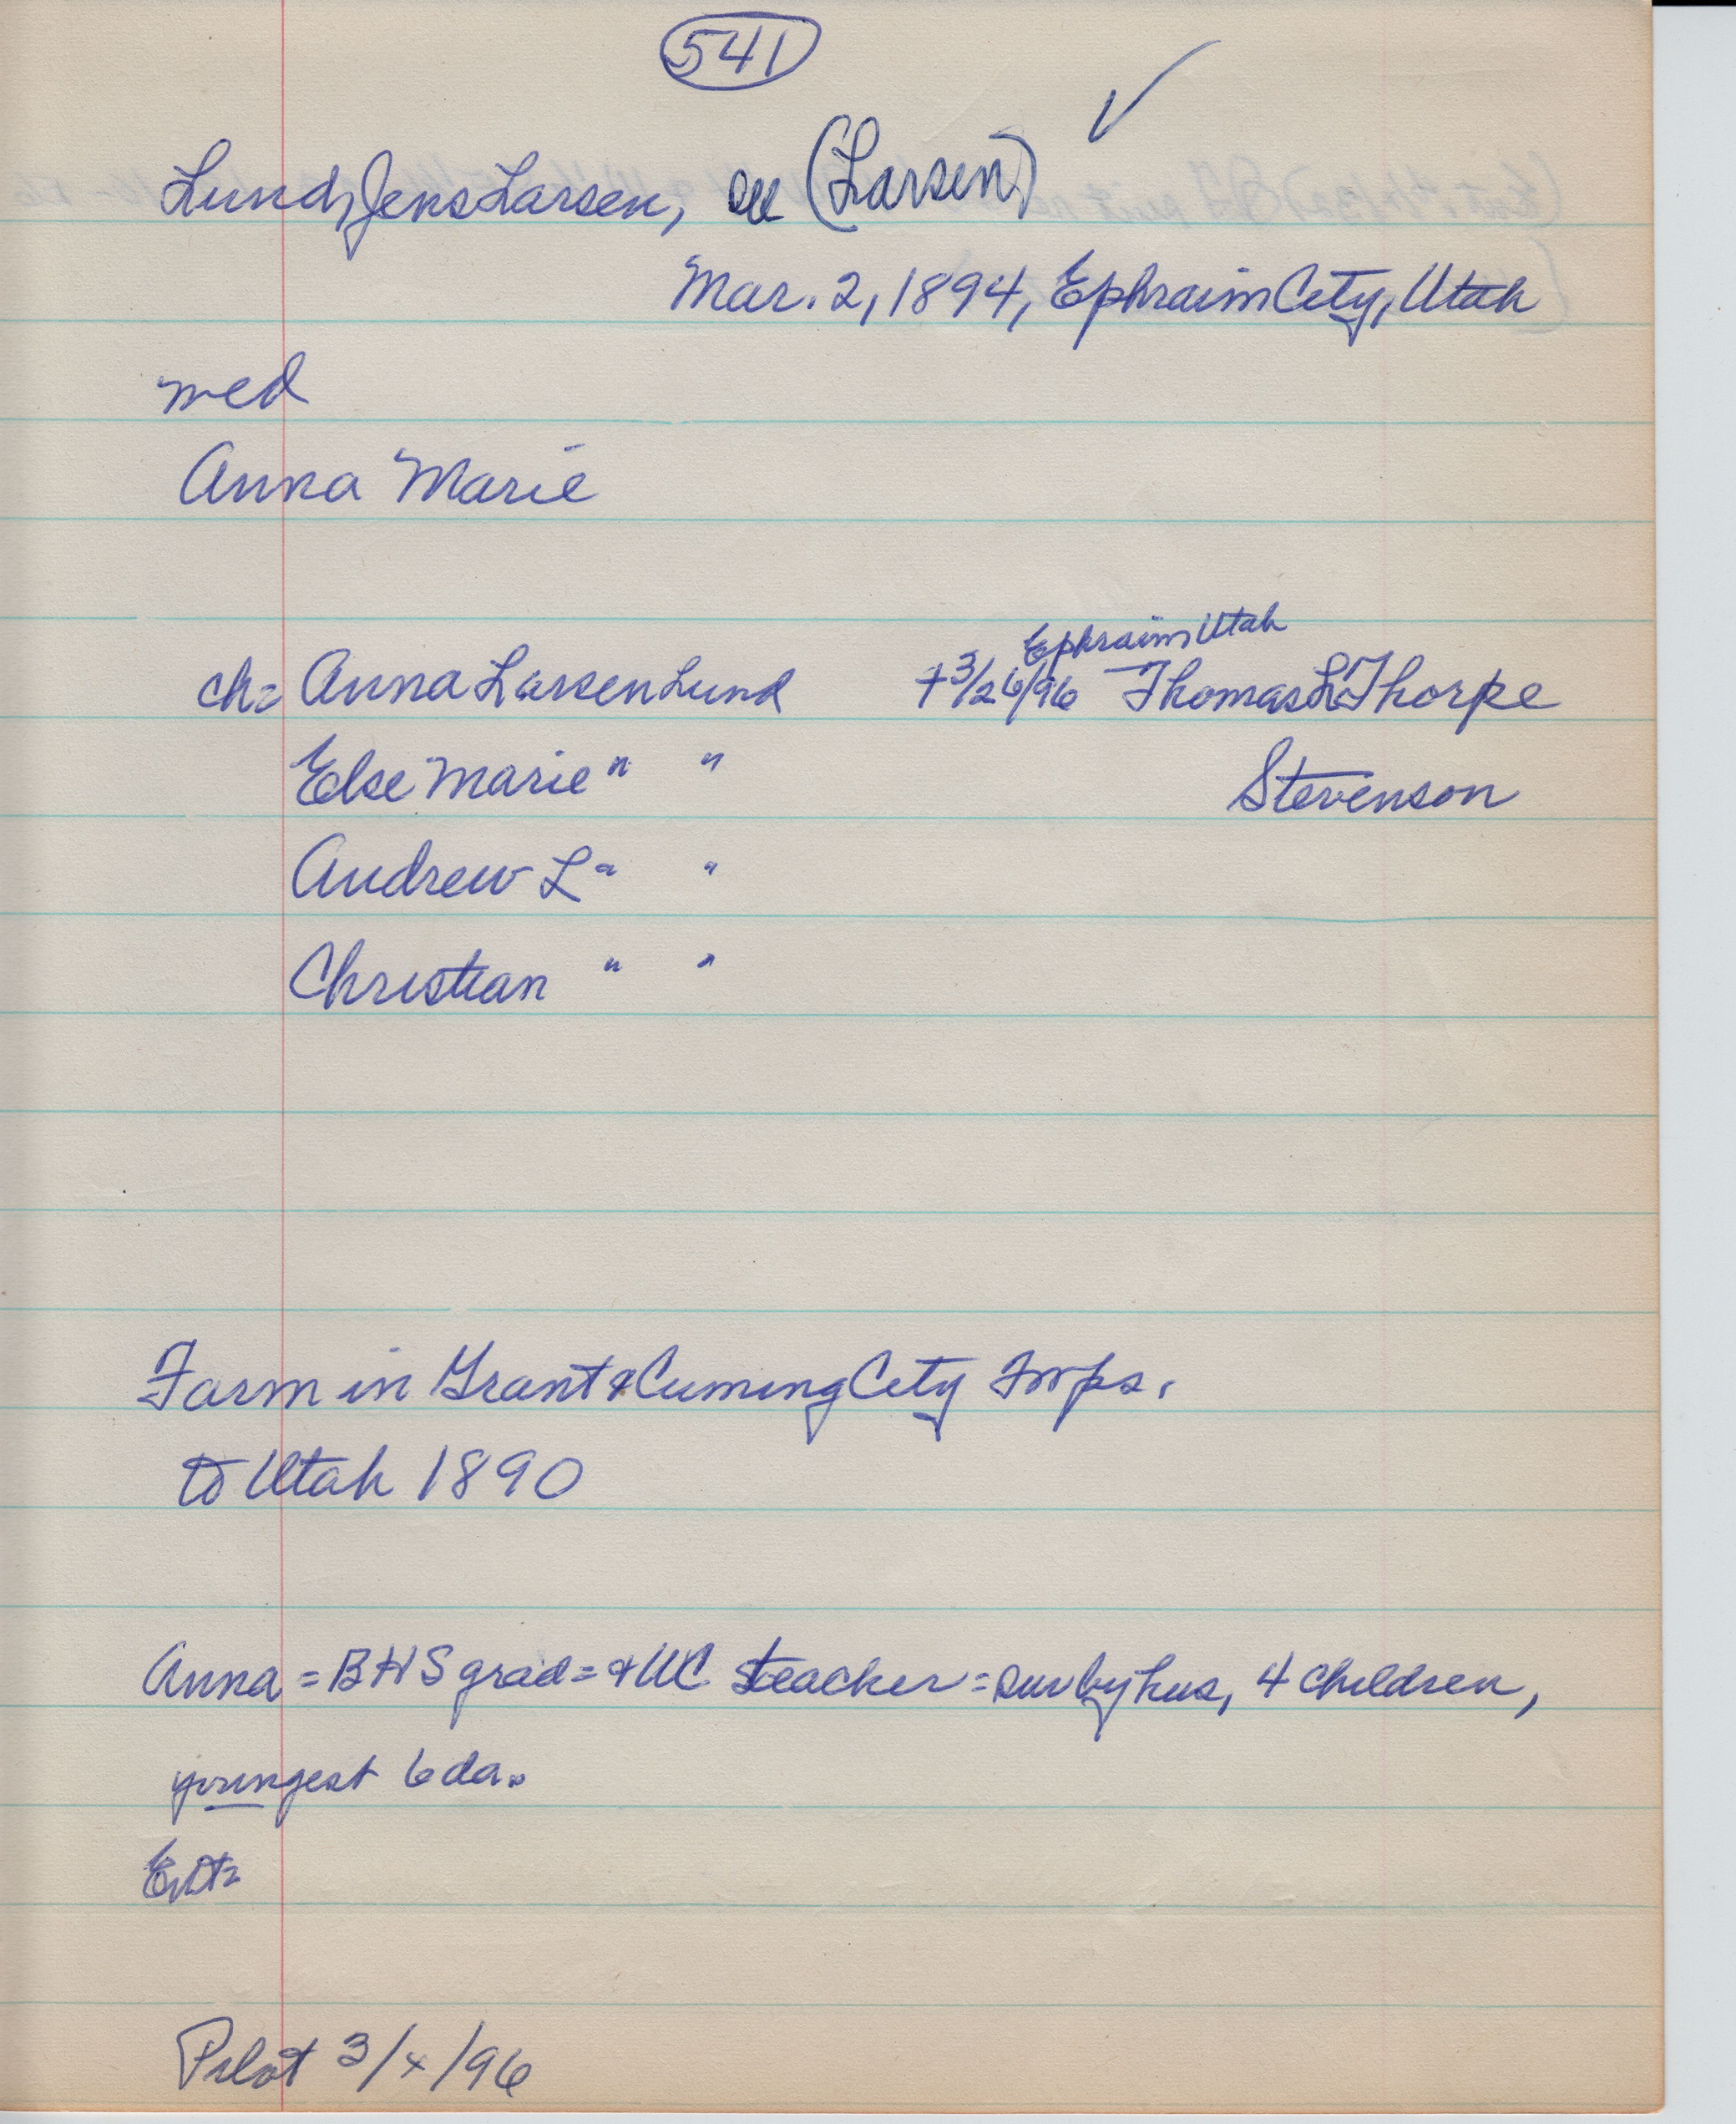 541
Lund, Jens Larsen, see (Larsen) ✓
Mar. 2, 1894, Ephraim City, Utah
med
Anna Marie
Ephraim, Utah
ch= Anna Larsen Lund +3/26/96 Thomas L Thorpe
Else Marie " " Stevenson
Andrew L " "
Christian " "
Farm in Grant & Cuming City Twps.
to Utah 1890
Anna = BHS grad = & WC teacher = sur by hus, 4 children,
youngest 6 da.
Ent=
Pilot 3/4/96